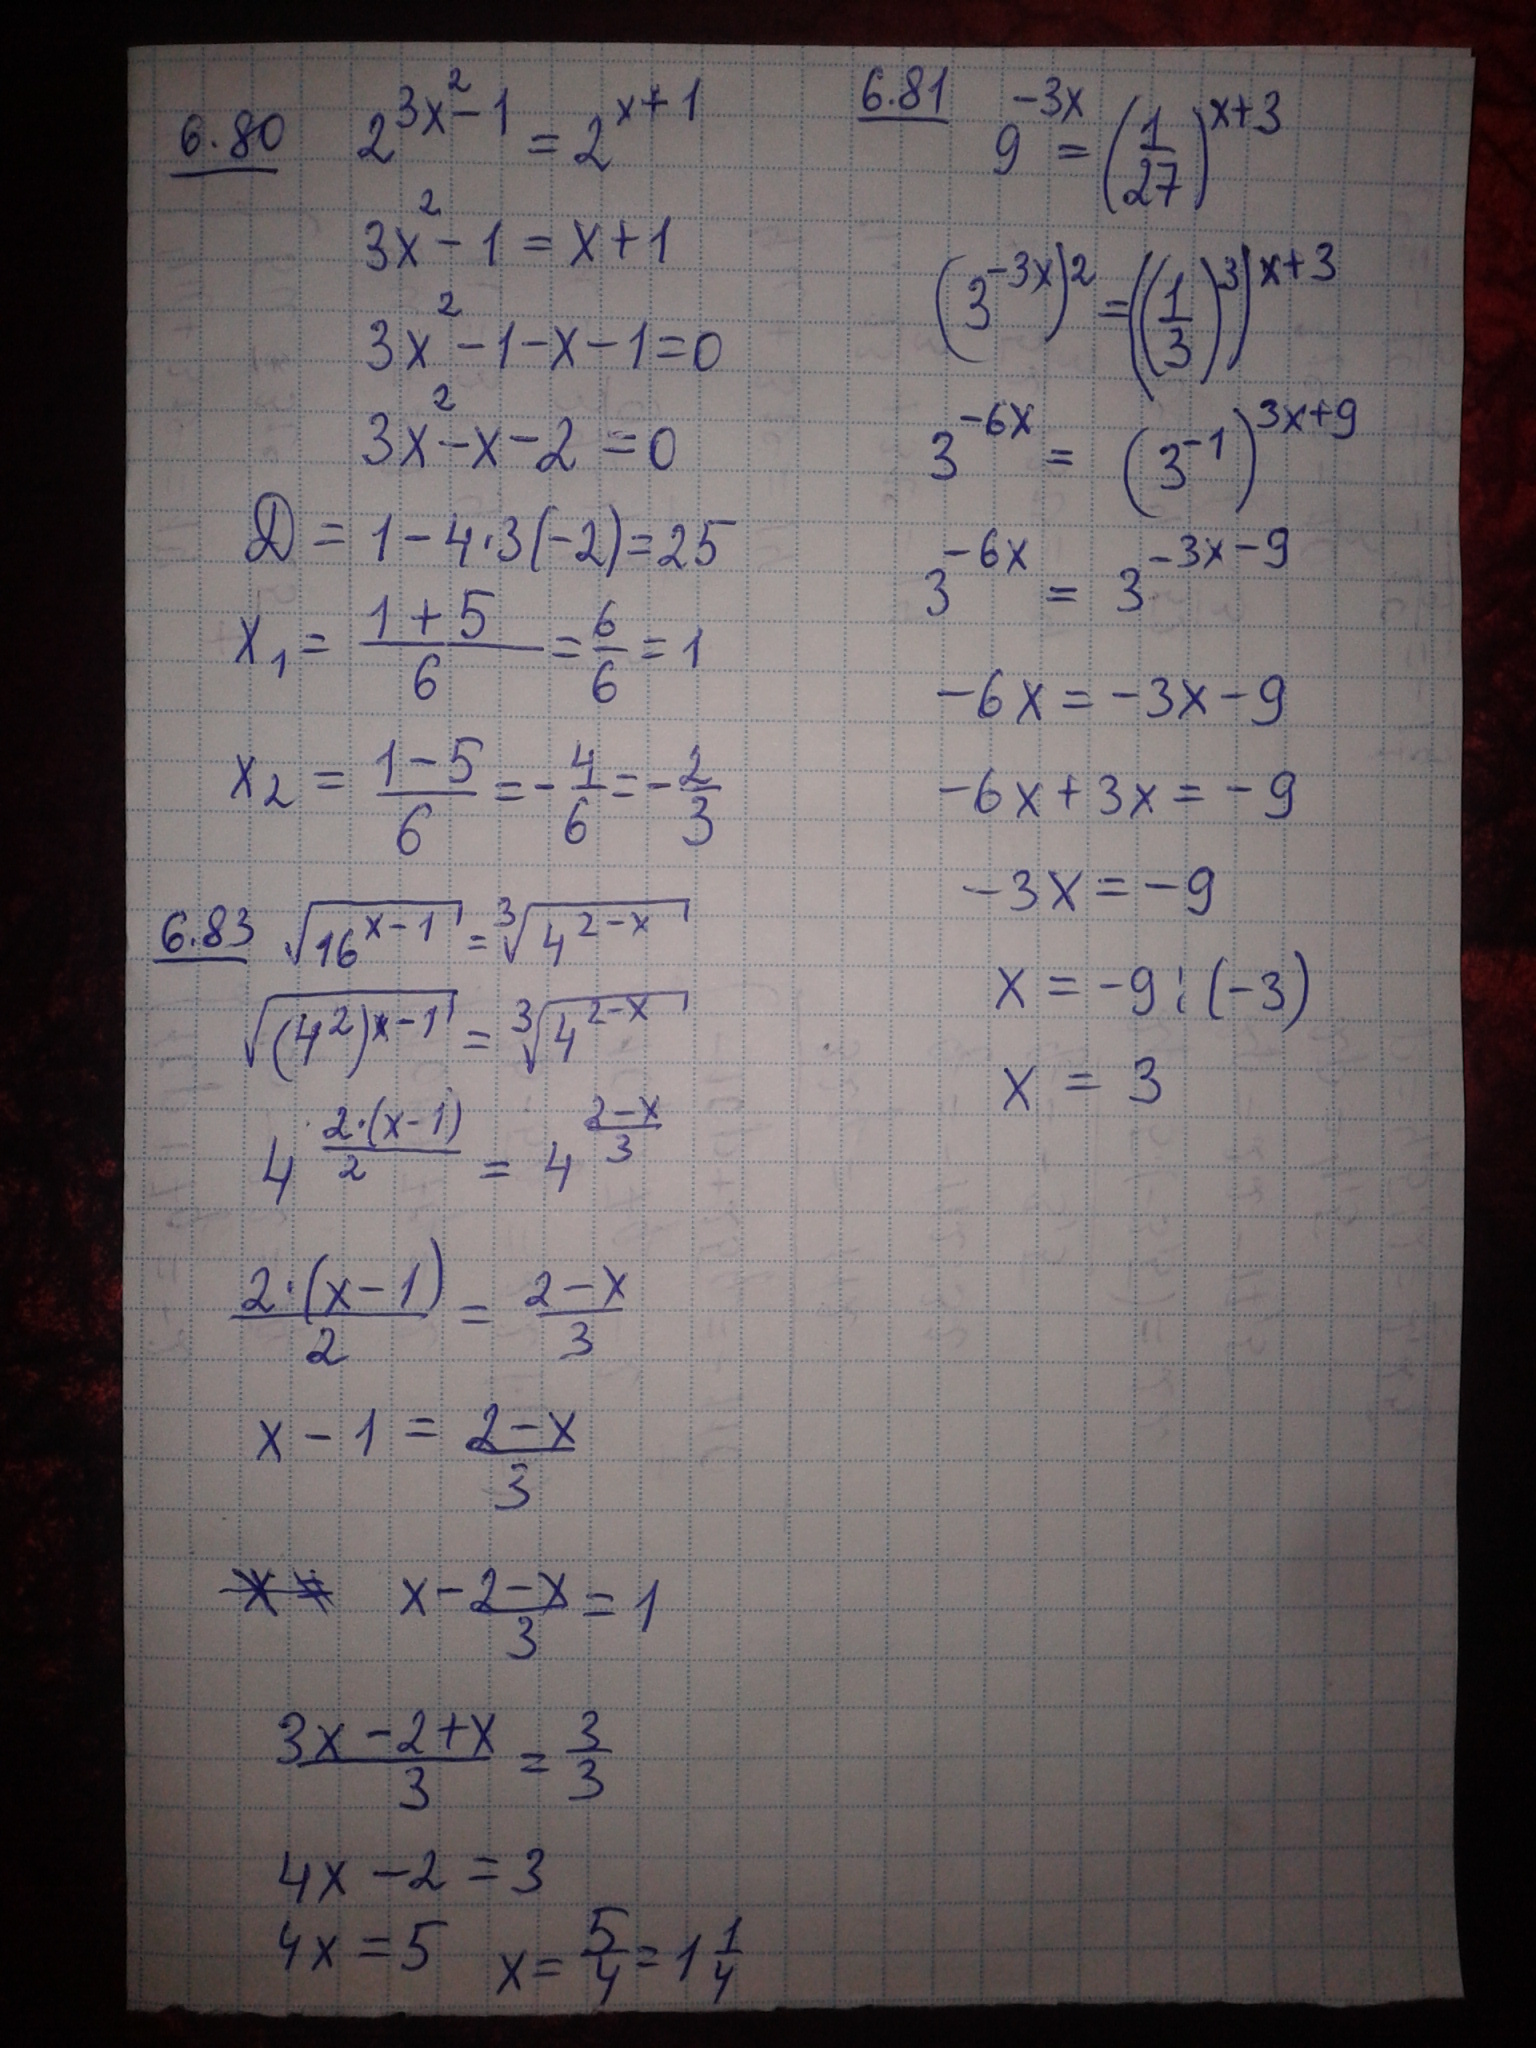 6.80 2^{3x^2-1} = 2^{x+1}
3x^2 - 1 = x + 1
3x^2 - 1 - x - 1 = 0
3x^2 - x - 2 = 0
D = 1 - 4·3(-2) = 25
x_1 = \frac{1+5}{6} = \frac{6}{6} = 1
x_2 = \frac{1-5}{6} = -\frac{4}{6} = -\frac{2}{3}
6.83 \sqrt{16^{x-1}} = \sqrt[3]{4^{2-x}}
\sqrt{(4^2)^{x-1}} = \sqrt[3]{4^{2-x}}
4^{\frac{2·(x-1)}{2}} = 4^{\frac{2-x}{3}}
\frac{2·(x-1)}{2} = \frac{2-x}{3}
x - 1 = \frac{2-x}{3}
x - \frac{2-x}{3} = 1
\frac{3x-2+x}{3} = \frac{3}{3}
4x - 2 = 3
4x = 5 x = \frac{5}{4} = 1\frac{1}{4}
6.81 9^{-3x} = (\frac{1}{27})^{x+3}
(3^{-3x})^2 = ((\frac{1}{3})^3)^{x+3}
3^{-6x} = (3^{-1})^{3x+9}
3^{-6x} = 3^{-3x-9}
-6x = -3x - 9
-6x + 3x = -9
-3x = -9
x = -9 : (-3)
x = 3